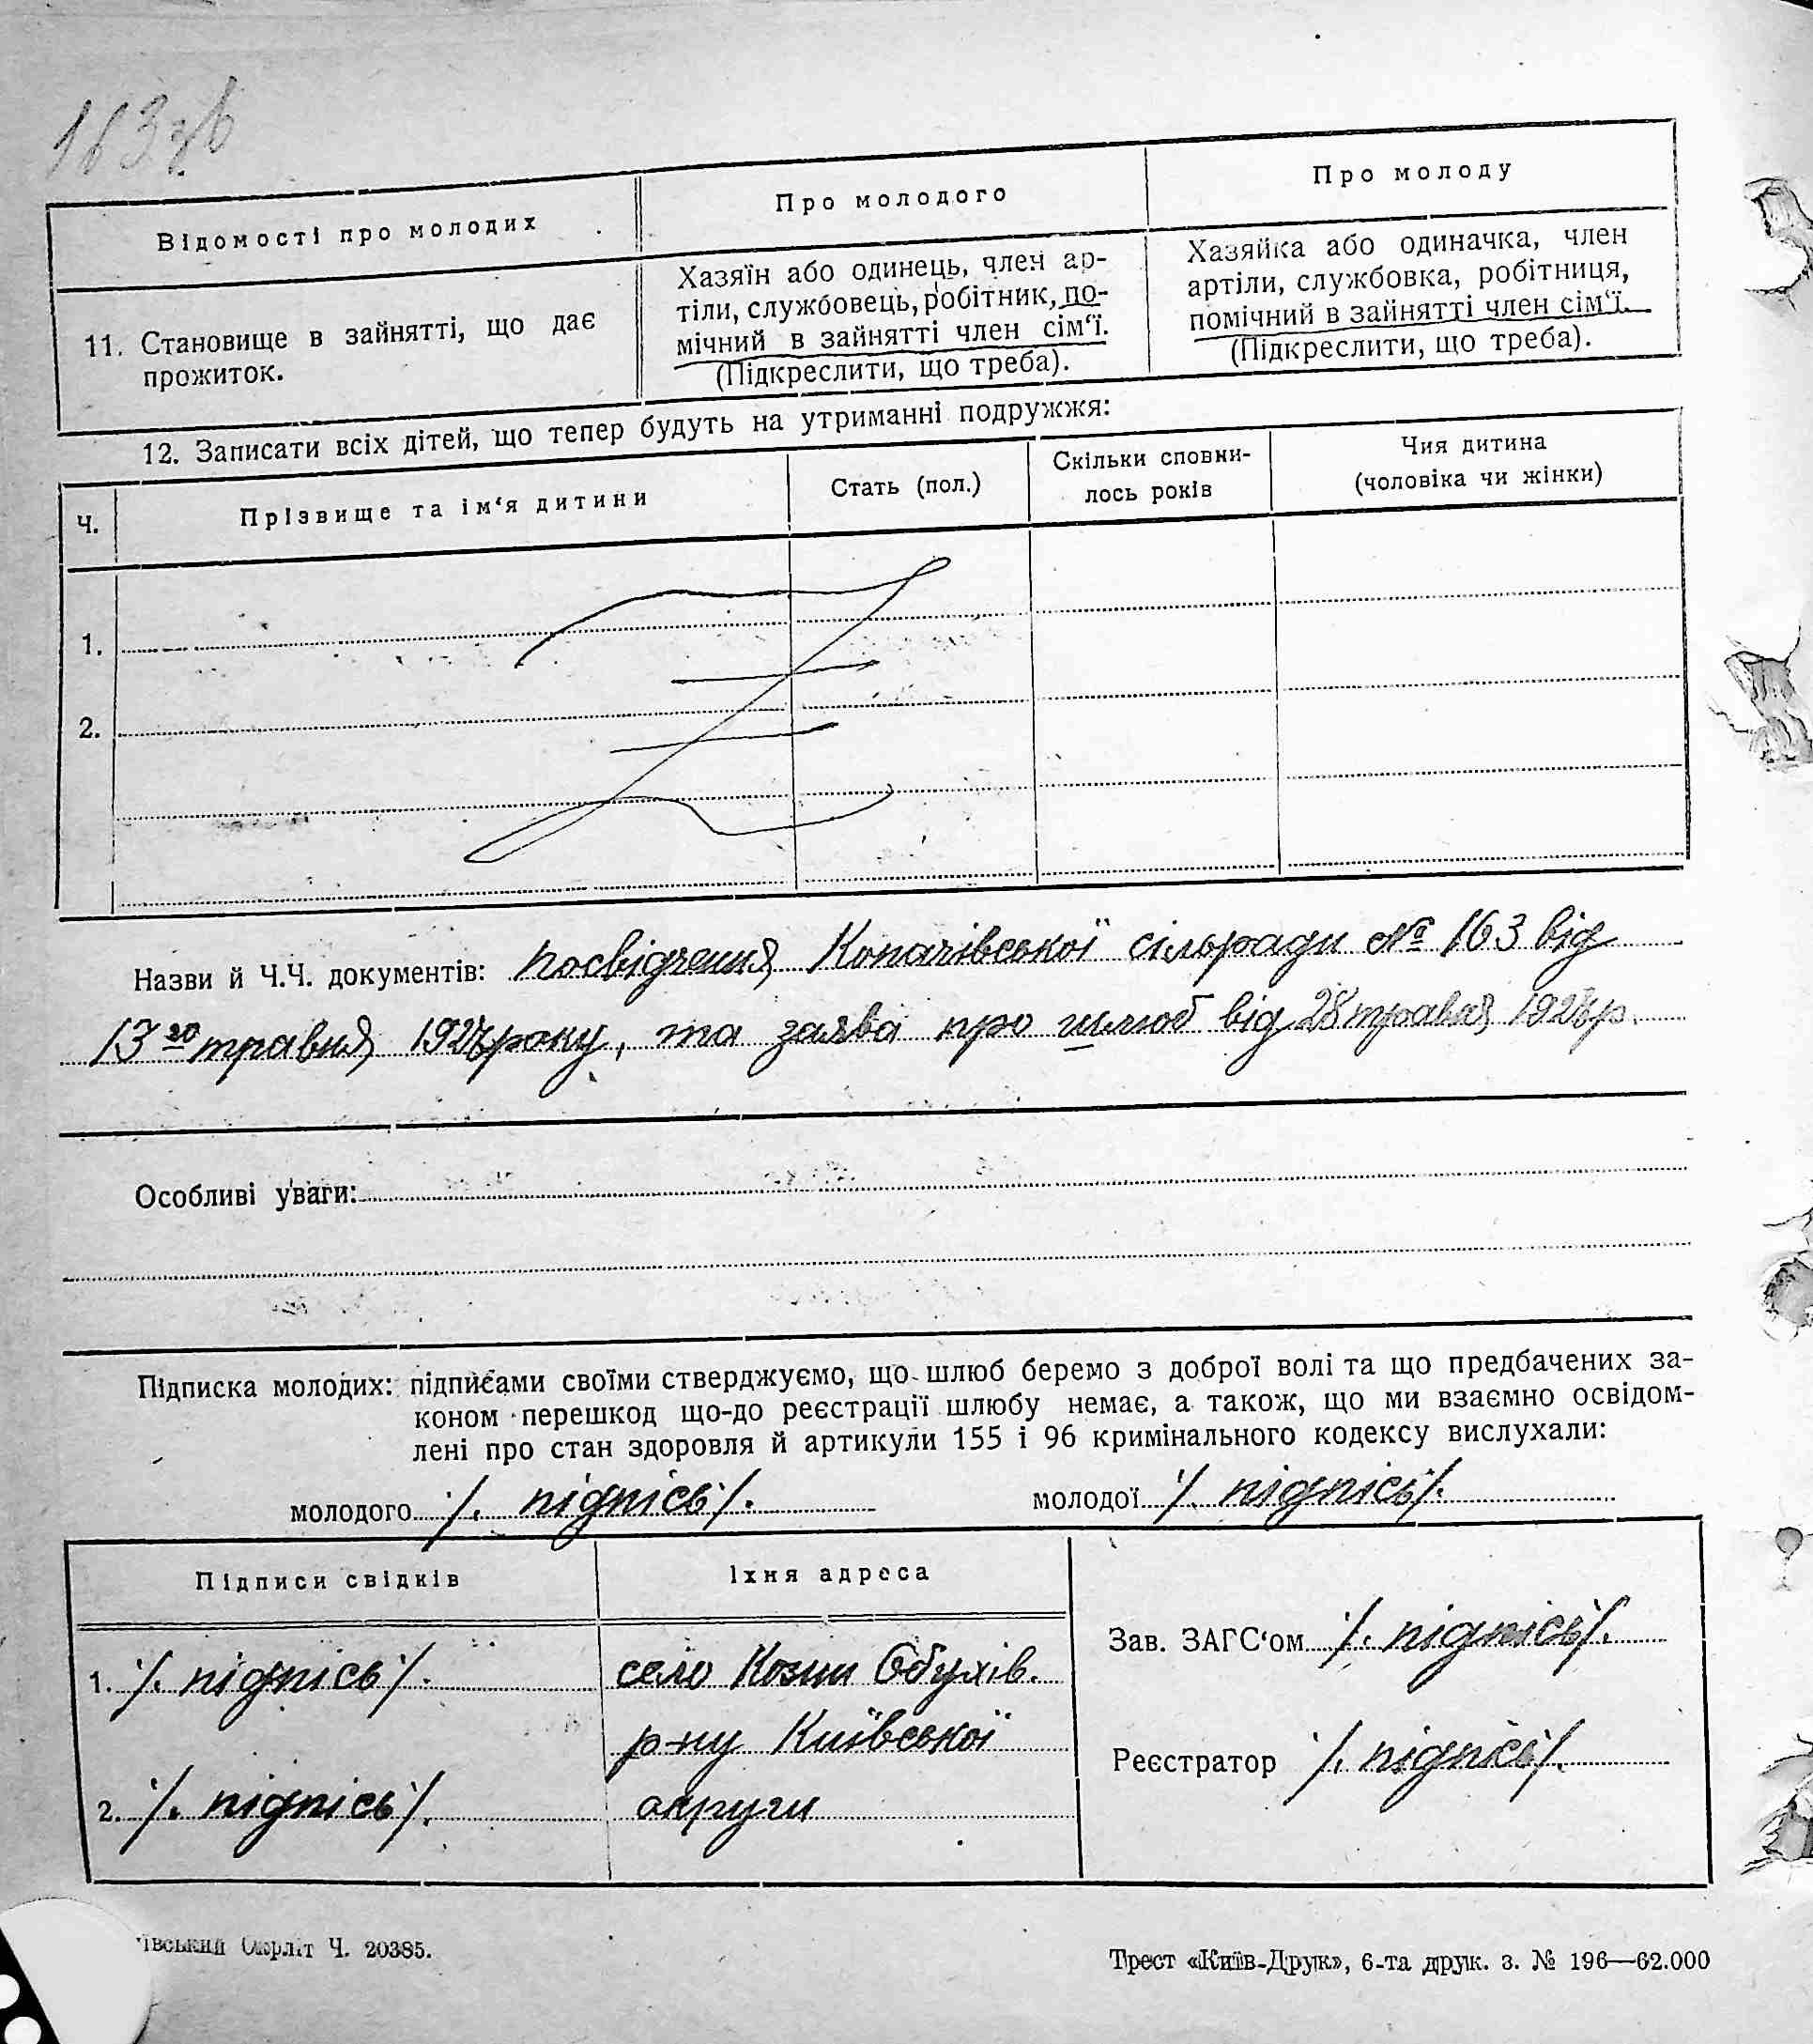 163 зв
Відомості про молодих
Про молодого
Про молоду
11. Становище в зайнятті, що дає
прожиток.
Хазяїн або одинець, член ар-
тіли, службовець, робітник, по-
мічний в зайнятті член сім‘ї.
(Підкреслити, що треба).
Хазяйка або одиначка, член
артіли, службовка, робітниця,
помічний в зайнятті член сім‘ї.
(Підкреслити, що треба).
12. Записати всіх дітей, що тепер будуть на утриманні подружжя:
Ч.
Прізвище та ім‘я дитини
Стать (пол.)
Скільки сповни-
лось років
Чия дитина
(чоловіка чи жінки)
1.
2.
Назви й Ч.Ч. документів: посвідчення Копачівської сільради № 163 від
13го травня року, та заява про шлюб від 28 травня
Особливі уваги:
Підписка молодих: підписами своїми стверджуємо, що шлюб беремо з доброї волі та що предбачених за-
коном перешкод що-до реєстрації шлюбу немає, а також, що ми взаємно освідом-
лені про стан здоровля й артикули 155 і 96 кримінального кодексу вислухали:
молодого /. підпісь /.
молодої /. підпісь /.
Підписи свідків
Їхня адреса
1. /. підпісь /.
2. /. підпісь /.
село Козин Обухів.
р-ну Київської
округи
Зав. ЗАГС‘ом /. підпісь /.
Реєстратор /. підпісь /.
ївський Окрліт Ч. 20385.
Трест «Київ-Друк», 6-та друк. з. № 196—62.000